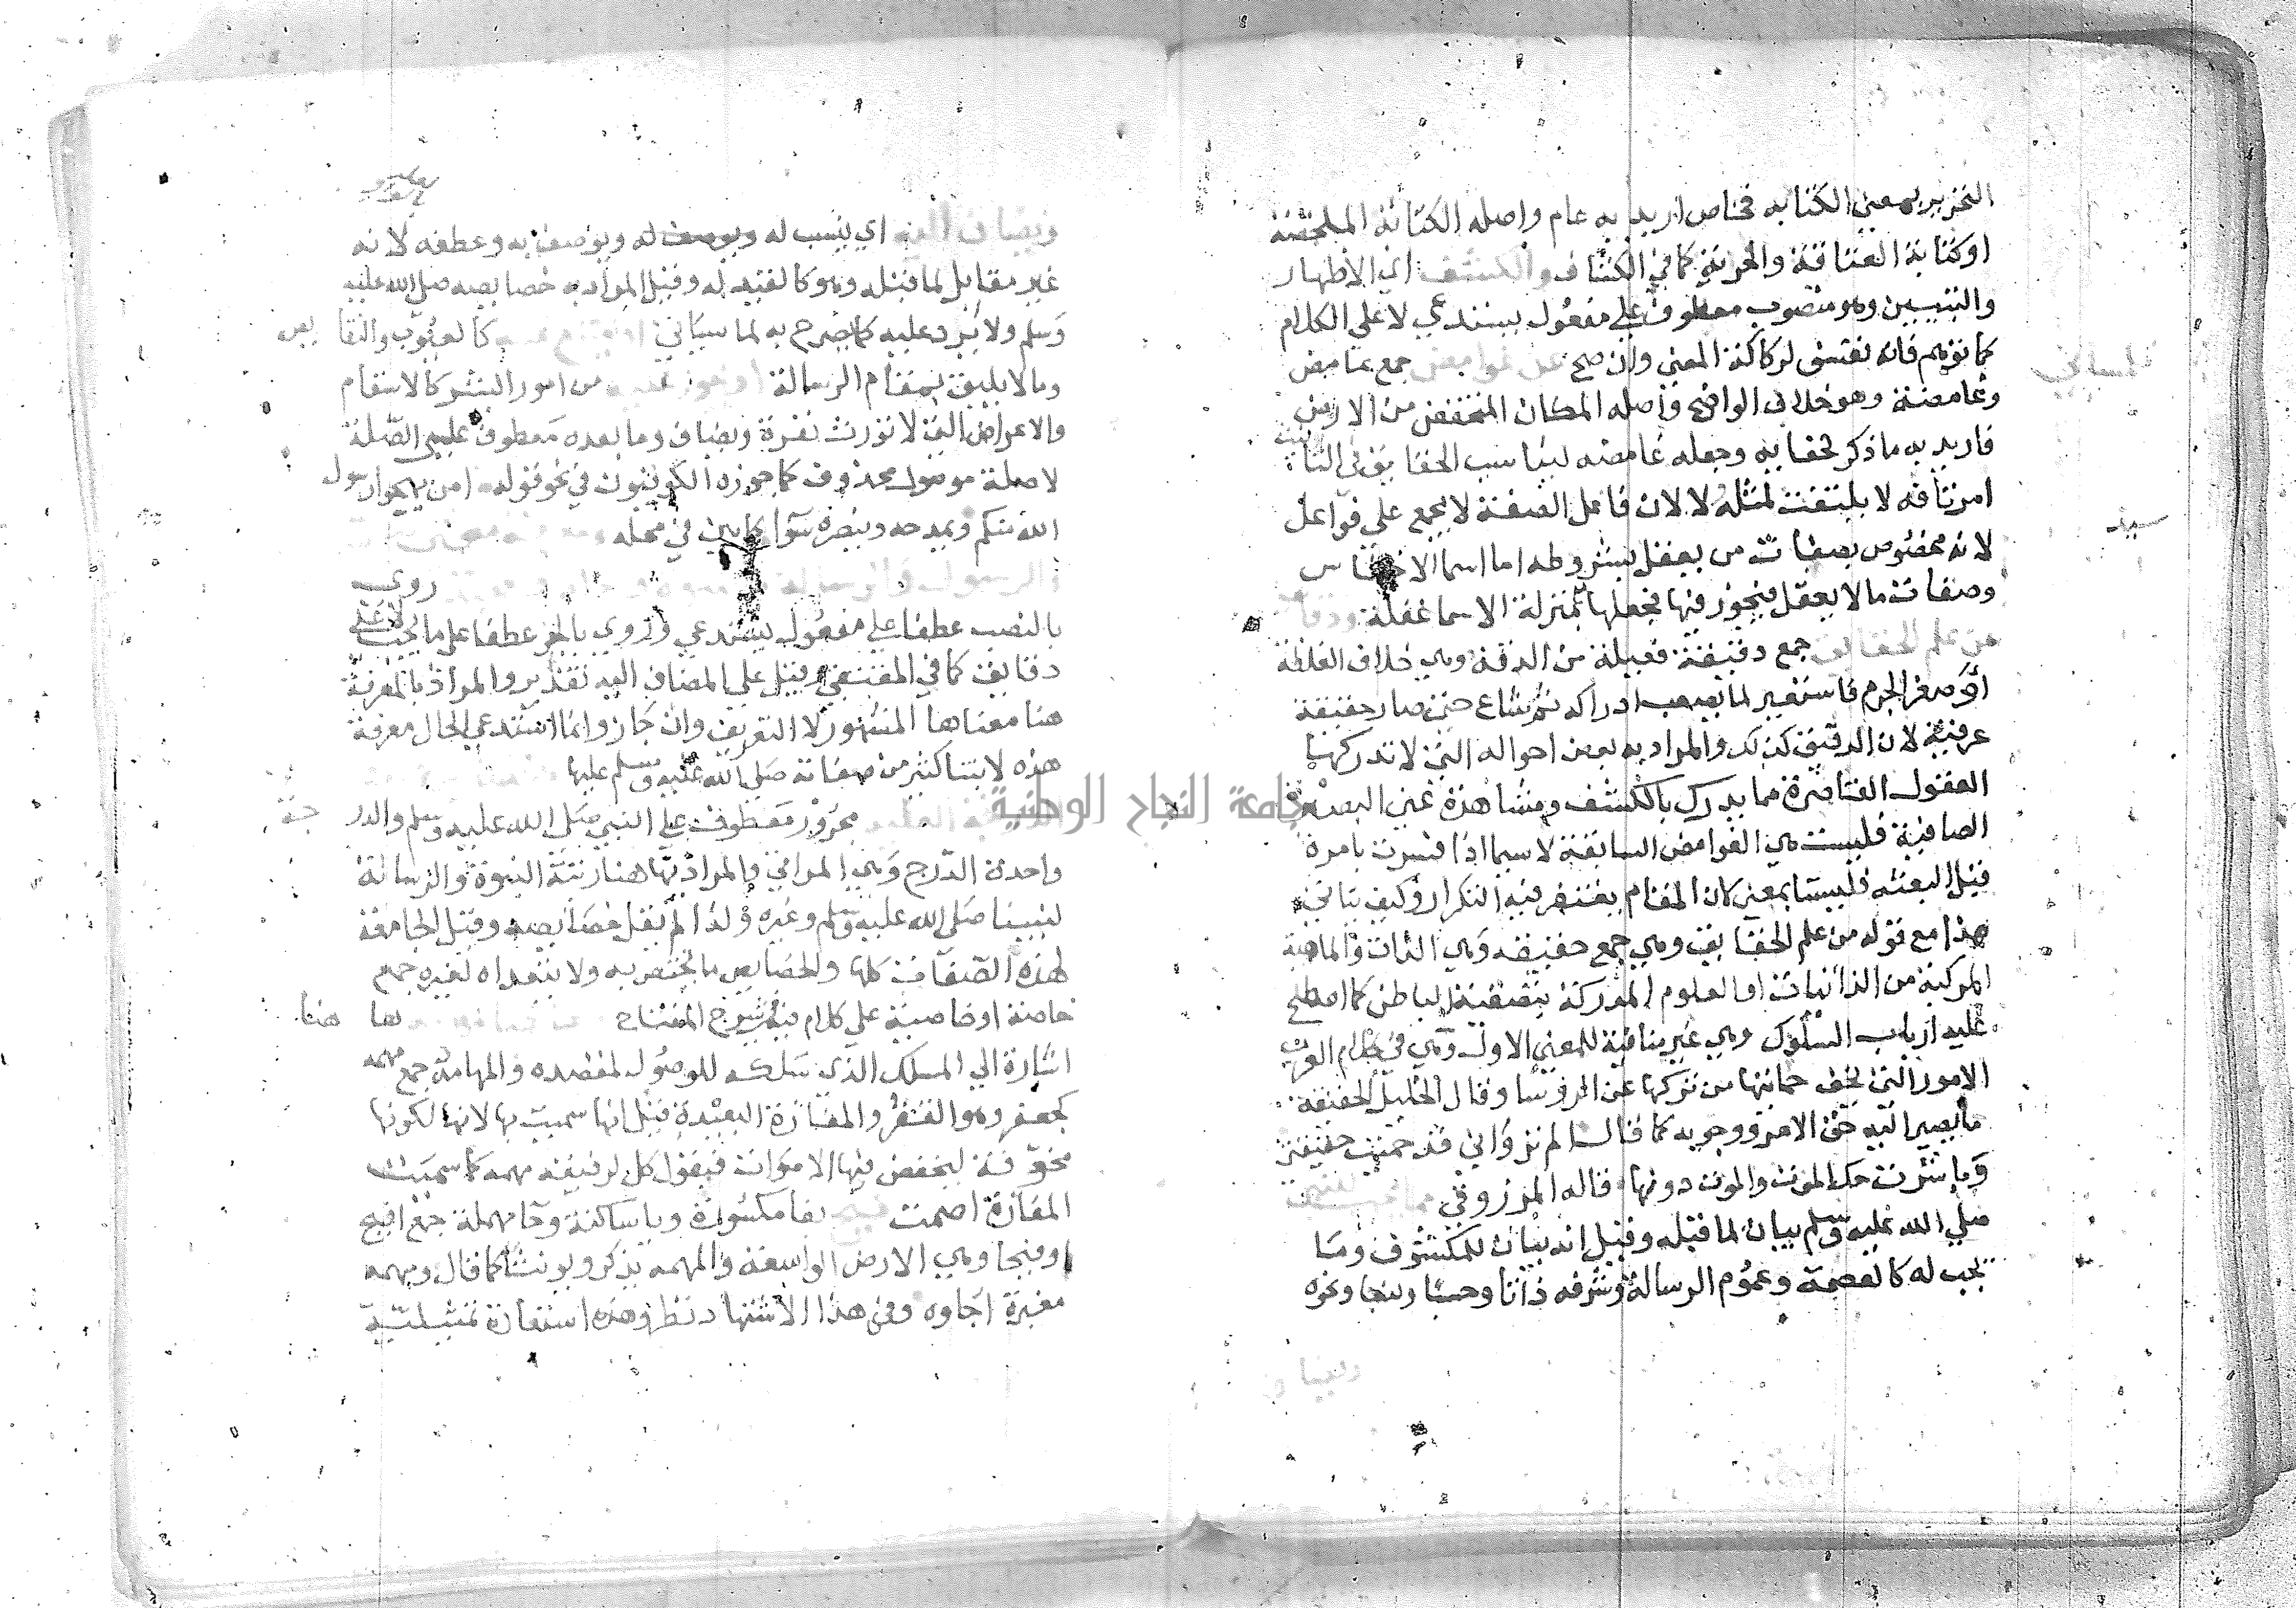 التحرير بمعنى الكتابة فخاص اريد به عام واصله الكتابة الملخصة
او كتابة العتاقة والحرية كما في الكشاف والكشف اي الاظهار
والتبيين وهو منصوب معطوف على مفعول يستدعي لا على الكلام
كما توهم فانه تعسف لركاكة المعنى وان صح عن غوامض جمع غامض
وغامضة وهو خلاف الواضح واصله المكان المنخفض من الارض
فاريد به ما ذكر لخفايه وجعله غامضه ليناسب الحقايق فى التا
امر تافه لا يلتفت لمثله لا لان فاعل الصفة لا يجمع على فواعل
لانه مخصوص بصفات من يعقل بشروطه اما اسما الاجناس
وصفات ما لا يعقل فيجوز فيها فجعلها بمنزلة الاسما غفلة ودقا
من علم الحقايق جمع دقيقة فعيلة من الدقة وهي خلاف الغلظة
او صغر الجرم فاستعير لما يصعب ادراكه ثم شاع حتى صار حقيقة
عرفية لان الدقيق كذلك والمراد به بعض احواله التي لا تدركها
العقول القاصرة مما يدرك بالكشف ومشاهدة عين البصيرة
الصافية فليست هي الغوامض السابقة لاسيما اذا فسرت بامره
قبل البعثة فليستا بمعنى كان المقام يغتفر فيه التكرار وكيف يتاتى
هذا مع قوله من علم الحقايق وهي جمع حقيقة وهي الذات والماهية
المركبة من الذاتيات او العلوم المدركة بتصفية الباطن كما اصطلح
عليه ارباب السلوك وهي غير منافية للمعنى الاول وهي في كلام العرب
الامور التي يخف حمايتها من تركها عن المرفوسا وقال الخليل الحقيقة
ما يصير اليه حق الامر ووجوبه كما قال الم تر اني قد حميت حقيقتي
وباشرت حد الموت والموت دونها قاله المرزوقي مما يجب للنبى
صلى الله عليه وسلم بيان لما قبله وقيل انه بيان للمكشوف وما
يجب له كالعصمة وعموم الرسالة وشرفه ذاتا وحسبا ونسبا ونحوه
ويضاف
ويضاف اليه اي ينسب له ويوصف له ويوصف به وعطفه لانه
غير مقابل لما قبله وهو كالقيد له وقيل المراد به خصايصه صلى الله عليه
وسلم ولا يرد عليه كما صرح به لما سياتي او يمتنع عليه كالعيوب والنقايص
وما لا يليق بمقام الرسالة او يجوز عليه من امور البشر كالاسقام
والاعراض التي لا تورث نفرة ويضاف وما بعده معطوف على الصلة
لا صلة موصول محذوف كما جوزه الكوفيون في نحو قوله امن يهجو رسول
الله منكم ويمدحه وينصره سوا كما بين في محله ومعرفة معنى
والرسول والرسالة والنبوة روي
بالنصب عطفا على مفعول يستدعي وروي بالجر عطفا على ما يجب لا على
دقايق كما في المقتفى وقيل على المضاف اليه تقدير والمراد بالمعرفة
هنا معناها المشهور لا التعريف وان جاز وانما استدعي الحال معرفة
هذه لابتنا كثير من صفاته صلى الله عليه وسلم عليها
الدرجة العلية مجرور معطوف على النبي صلى الله عليه وسلم والدرجة
واحدة الدرج وهي المراقي والمراد بها هنا رتبة النبوة والرسالة
لنبينا صلى الله عليه وسلم وغيره ولذا لم يقل خصايصه وقيل الجامعة
لهذه الصفات كلها والخصايص ما يختص به ولا يتعداه لغيره جمع
خاصة او خاصية على كلام فيه شروح المفتاح ها هنا
اشارة الى المسلك الذي سلكه للوصول لمقصده والمهامه جمع مهمه
كجعفر وهو القفر والمفازة البعيدة قيل انها سميت بها لانها لكونها
مخوفة ليخفض فيها الاصوات فيقول كل لرفيقه مهمه كما سميت
المفازة اصمت فيح بفا مكسورة ويا ساكنة وحا مهملة جمع افيح
او فيحا وهي الارض الواسعة والمهمه يذكر ويونث كما قال ومهمه
مغبرة ارجاوه وفي هذا الاستشهاد نظر وهذه استعارة تمثيلية
جامعة النجاح الوطنية